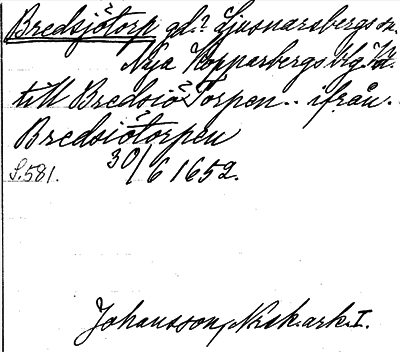 Bredsjötorp gd.? Ljusnarsbergs sn.
Nya Kopparbergs blg.
till Bredsiö Torpen.. ifrån..
Bredsiötorpen
S.581. 30/6 1652.
Johansson, Nrsk.ark.I.